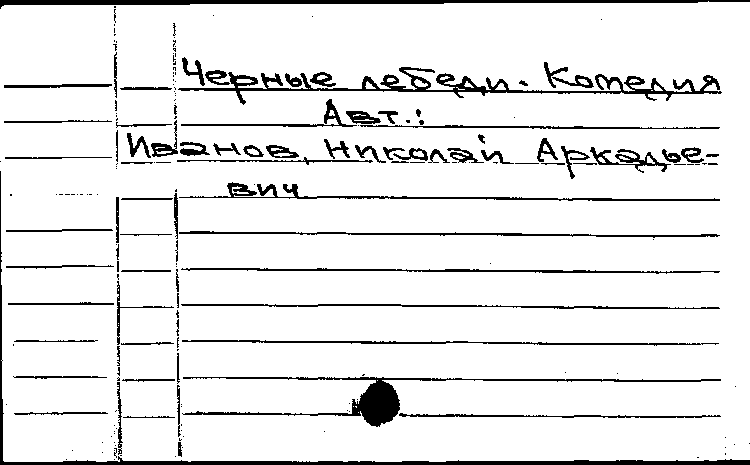 Черные лебеди. Комедия
Авт.:
Иванов, Николай Аркадье-
вич